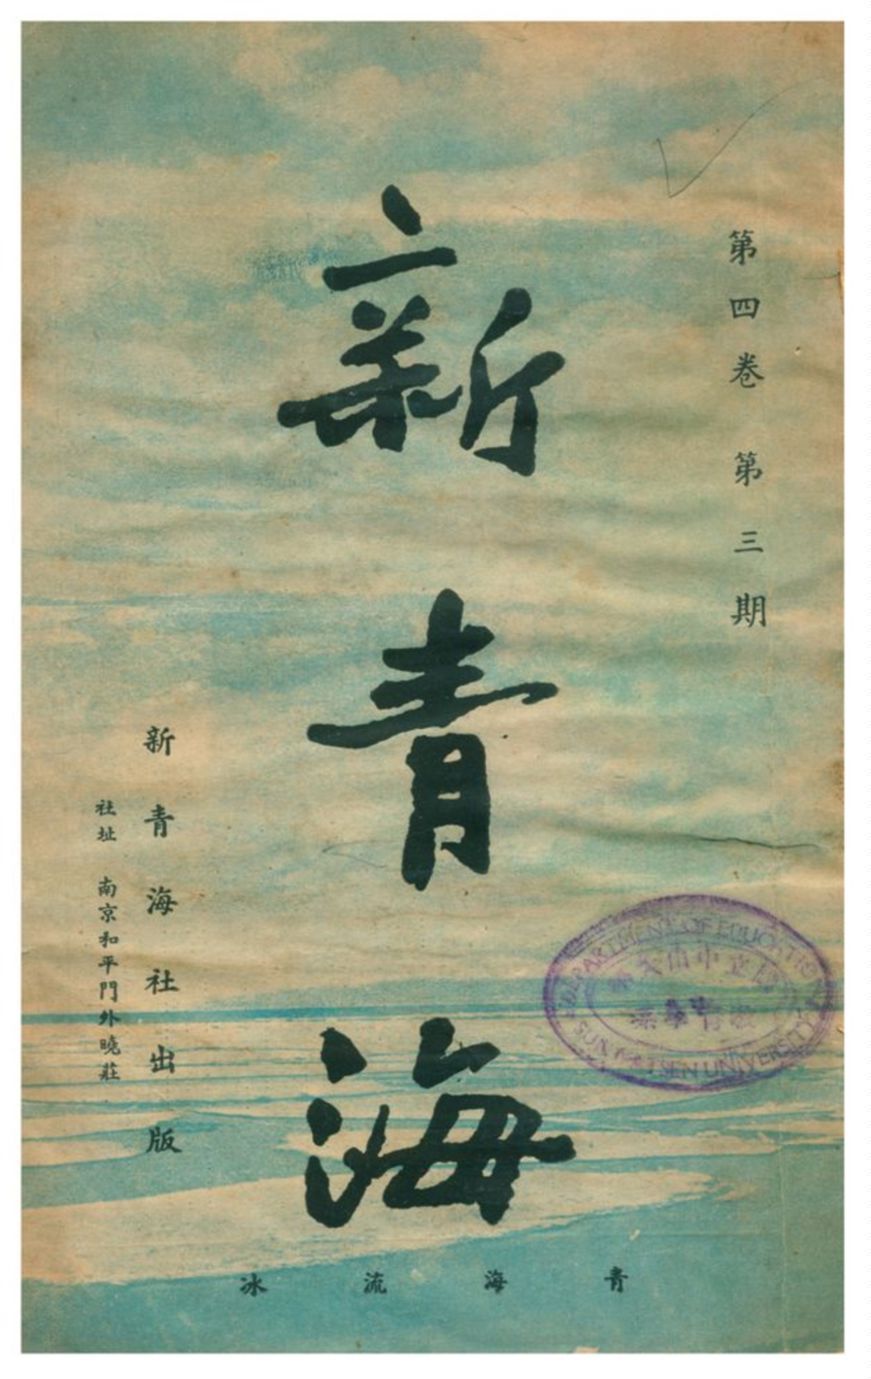 第四卷 第三期
新青海
新青海社出版
社址 南京和平門外曉莊
青海流冰
DEPARTMENT OF EDUCATION
SUN YAT SEN UNIVERSITY